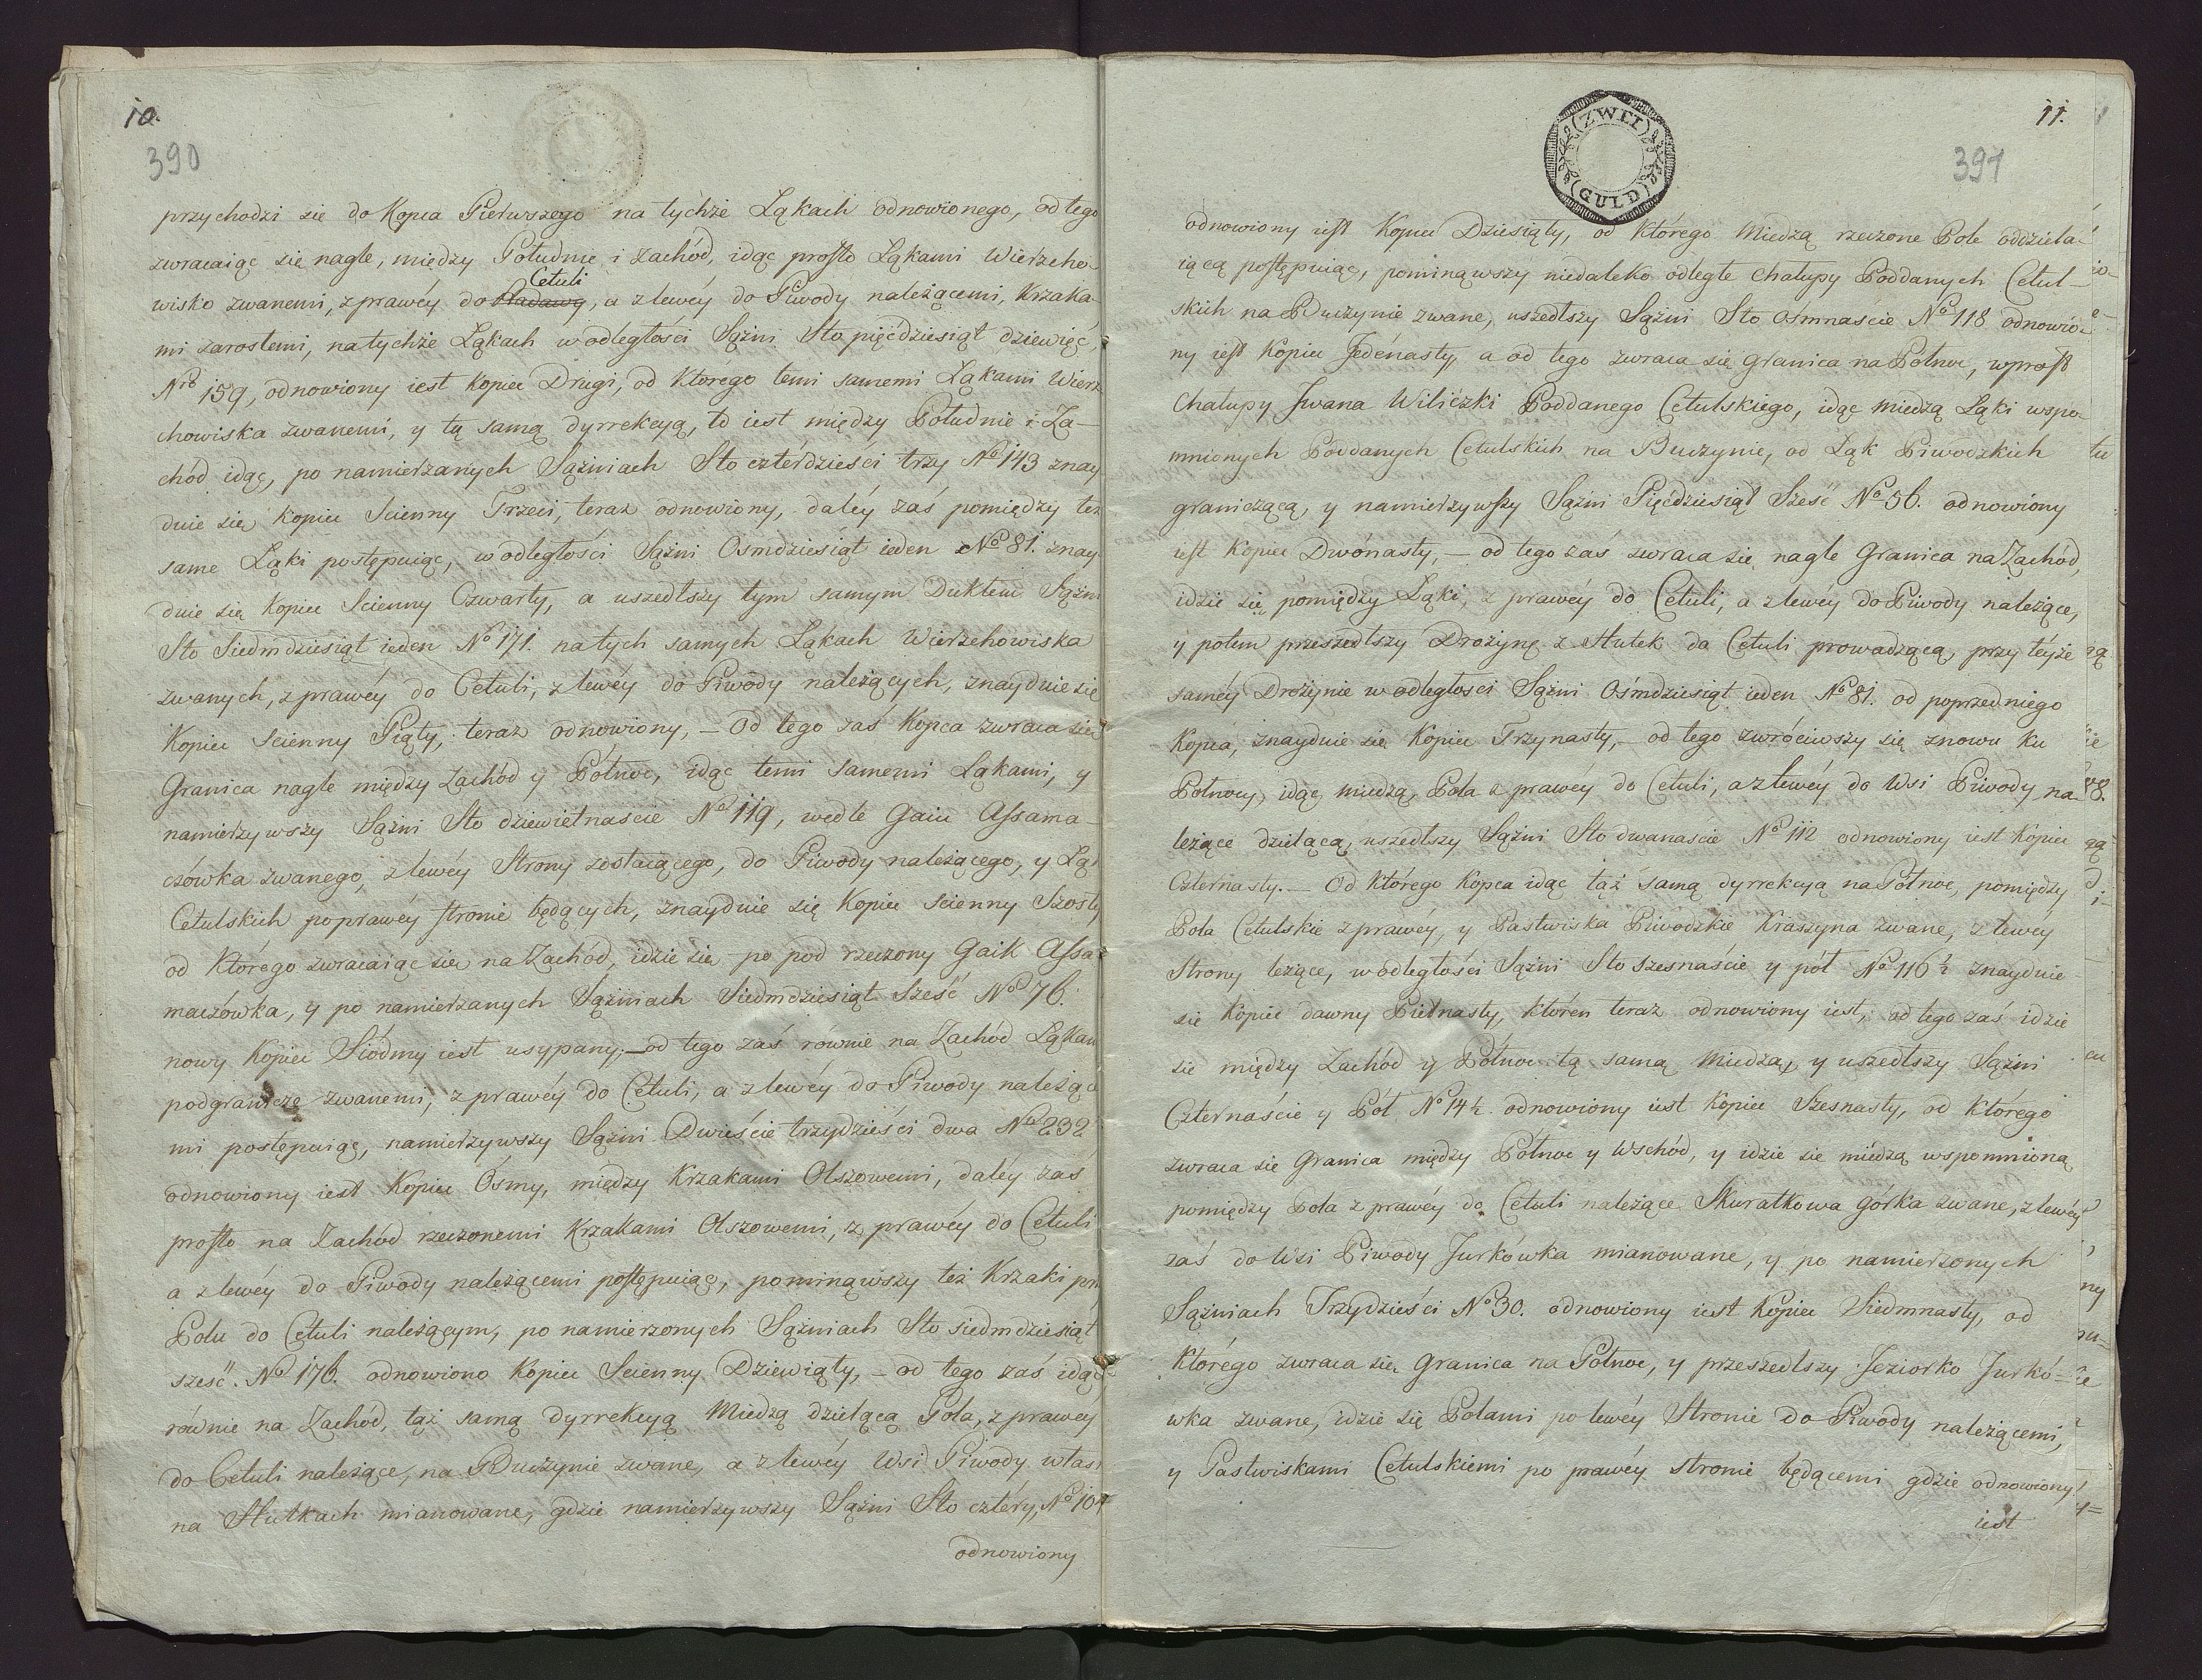 10.
390
przychodzi się do Kopca Pierwszego na tychże Łąkach odnowionego, od tego
zwracaiąc się nagle, między Południe i Zachód, idąc prosto Łąkami Wierzcho-
Cetuli
wisko zwanemi, z prawéy do, a z lewéy do Piwody należącemi, Krzaka-
mi zarosłemi, na tychże Łąkach w odległości Sążni Sto pięćdziesiąt dziewięć,
Nro 159, odnowiony iest Kopiec Drugi, od ktorego temi samemi Łąkami Wierz
chowiska zwanemi, y tą samą dyrrekcyą, to iest między Południe i Za-
chód idąc, po namierzanych Sążniach Sto czterdzieści trzy No 143 znay
duie się Kopiec Scienny Trzeci, teraz odnowiony, daléy zaś pomiędzy też
same Łąki postępuiąc, w odległości Sążni Osmdziesiąt ieden No 81. znay
duie się Kopiec Scienny Czwarty, a uszedłszy tym samym Duktem Sążni
Sto Siedmdziesiąt ieden No 171. na tych samych Łąkach Wierzchowiska
zwanych, z prawéy do Cetuli, z lewéy do Piwody należących, znayduie się
Kopiec Scienny Piąty, teraz odnowiony, – Od tego zaś Kopca zwraca się
Granica nagle między Zachód y Północ, idąc temi samemi Łąkami, y
namierzywszy Sążni Sto dziewiętnascie No 119, wedle Gaiu Assama-
czówka zwanego, z lewéy Strony zostaiącego, do Piwody należącego, y Łąk
Cetulskich po prawéy stronie będących, znayduie się Kopiec Scienny Szosty
od Którego zwracaiąc się na Zachód, idzie się po pod rzeczony Gaik Assa
maczówka, y po namierzanych Sążniach Siedmdziesiąt Sześć No 76.
nowy Kopiec Siódmy iest usypany; – od tego zaś równie na Zachód Łąkam
podgranicze zwanemi, z prawéy do Cetuli, a z lewéy do Piwody należące
mi postępuiąc, namierzywszy Sążni Dwieście trzydzieści dwa No 232
odnowiony iest Kopiec Ósmy, między Krzakami Olszowemi, daléy zaś
prosto na Zachód rzeczonemi Krzakami Olszowemi, z prawéy do Cetuli
a z lewéy do Piwody należącemi postępuiąc, pominąwszy też Krzaki przy
Polu do Cetuli należącym, po namierzonych Sążniach Sto siedmdziesiąt
sześć. No 176. odnowiono Kopiec Scienny Dziewiąty, – od tego zaś idąc
równie na Zachód, tąż samą dyrrekcyą Miedzą dzielącą Pola, z prawéy
do Cetuli należące, na Buczynie zwane, a z lewéy Wsi Piwody włas
na Hutkach mianowane, gdzie namierzywszy Sążni Sto cztéry, No 104
odnowiony
ZWEI
GULD
11.
391
odnowiony iest Kopiec Dziesiąty, od którego Miedzą rzeczone Pole oddziela-
iącą postępuiąc, pominąwszy niedaleko odległe Chałupy Poddanych Cetul-
skich na Buczynie zwane, uszedłszy Sążni Sto Ośmnaście No 118 odnowio-
ny iest Kopiec Jedénasty, a od tego zwraca się granica na Północ, wprost
Chałupy Jwana Wiliczki Poddanego Cetulskiego, idąc Miedzą Łąki wspo-
mnionych Poddanych Cetulskich na Buczynie, od Łąk Piwodzkich
graniczącą, y namierzywszy Sążni Pięćdziesiąt Sześć No 56. odnowiony
iest Kopiec Dwónasty, – od tego zaś zwraca się nagle Granica na Zachód,
idzie się pomiędzy Łąki, z prawéy do Cetuli, a z lewéy do Piwody należące,
y potem przeszedłszy Drożynę z Hutek do Cetuli prowadzącą, przy téyże
saméy Drożynie w odległości Sążni Ośmdziesiąt ieden No 81. od poprzedniego
Kopca, znayduie się Kopiec Trzynasty, – od tego zwróciwszy się znowu Ku
Północy, idąc miedzą, Pola z prawéy do Cetuli, a z lewéy do Wsi Piwody na-
leżące dzielącą, uszedłszy Sążni Sto dwanaście No 112 odnowiony iest Kopiec
Czternasty. – Od którego Kopca idąc tąż samą dyrrekcyą na Północ, pomiędzy
Pola Cetulskie z prawéy, y Pastwiska Piwodzkie Kraszyna zwane, z lewéy
Strony leżące, w odległości Sążni Sto szesnaście y pół No 116½ znayduie
się Kopiec dawny Piętnasty, któren teraz odnowiony iest, od tego zaś idzie
się między Zachód y Północ tą samą Miedzą, y uszedłszy Sążni
Czternaście y Pół No 14½. odnowiony iest Kopiec Szesnasty, od Którego
zwraca się Granica między Północ y Wschód, y idzie się miedzą wspomnioną
pomiędzy Pola z prawéy do Cetuli należące Skuratkowa górka zwane, z lewéy
zaś do Wsi Piwody Jurkówka mianowane, y po namierzonych
Sążniach Trzydzieści No 30. odnowiony iest Kopiec Siedmnasty, od
Którego zwraca się Granica na Północ, y przeszedłszy Jeziorko Jurkó-
wka zwane, idzie się Polami po lewéy Stronie do Piwody należącemi,
y Pastwiskami Cetulskiemi po prawéy stronie będącemi gdzie odnowiony
iest